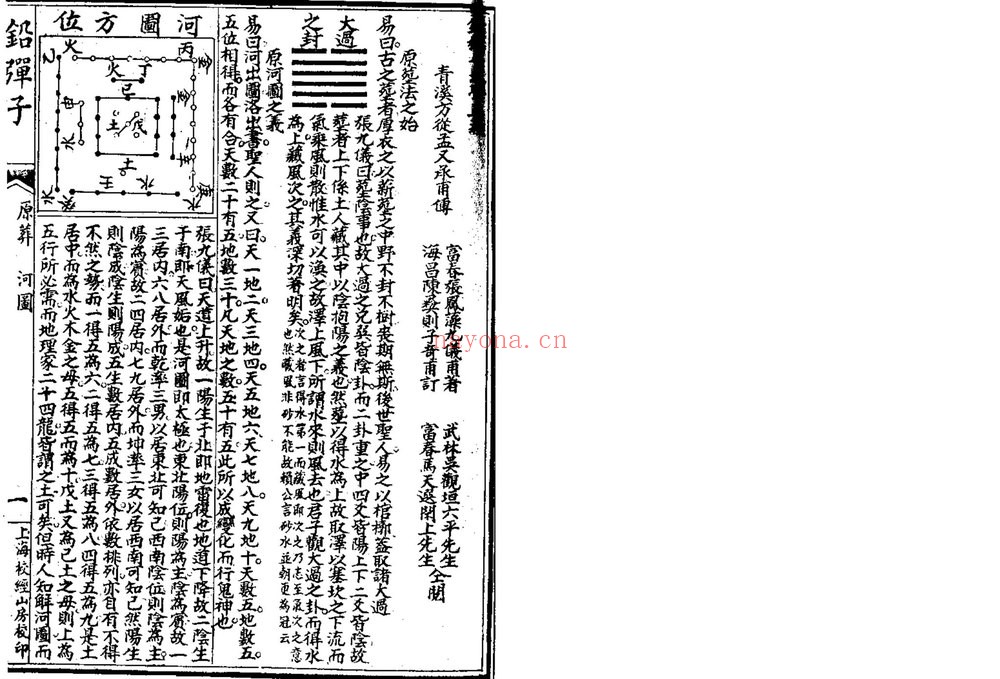 青溪方從孟又承甫傳
富春張鳳藻九儀甫著
海昌陳彝則子奇甫訂
武林吳觀垣六平先生
富春馬天選閑上先生 仝閱
原塟法之始
易曰古之塟者厚衣之以薪塟之中野不封不樹喪期無斯後世聖人易之以棺槨蓋取諸大過
大過之卦
張九儀曰塟陰事也故大過之兌巽皆陰卦而二卦重之中四爻皆陽上下二爻皆陰故
塟者上下係土人藏其中以陰抱陽之義也然塟以得水為上故取澤以塞坎之下流而
氣乘風則散惟水可以渙之故澤上風下所謂水來則風去也君子觀大過之卦而得水
為上藏風次之其義深切著明矣 次之者言得水第一而藏風即次之乃志至氣次之意也然藏風非砂不能故賴公言砂水並朝更為冠云
原河圖之義
易曰河出圖洛出書聖人則之又曰天一地二天三地四天五地六天七地八天九地十天數五地數五
五位相得而各有合天數二十有五地數三十凡天地之數五十有五此所以成變化而行鬼神也
河圖方位
丙
丁
火
火
己
戊
土
土
水
水
壬
癸
甲
金
張九儀曰天道上升故一陽生于北即地雷復也地道下降故二陰生
于南即天風姤也是河圖即太極也東北陽位則陽為主陰為賓故一
三居內六八居外而乾率三男以居東北可知已西南陰位則陰為主
陽為賓故二四居內七九居外而坤率三女以居西南可知已然陽生
則陰成陰生則陽成五生數居內五成數居外依數排列亦自有不得
不然之勢而一得五為六二得五為七三得五為八四得五為九是土
居中而為水火木金之母五得五而為十戊土又為己土之母則上為
五行所必需而地理家二十四龍皆謂之土可矣但時人知解河圖而
鉛彈子
原葬
河圖
一
上海校經山房校印
nayona.cn